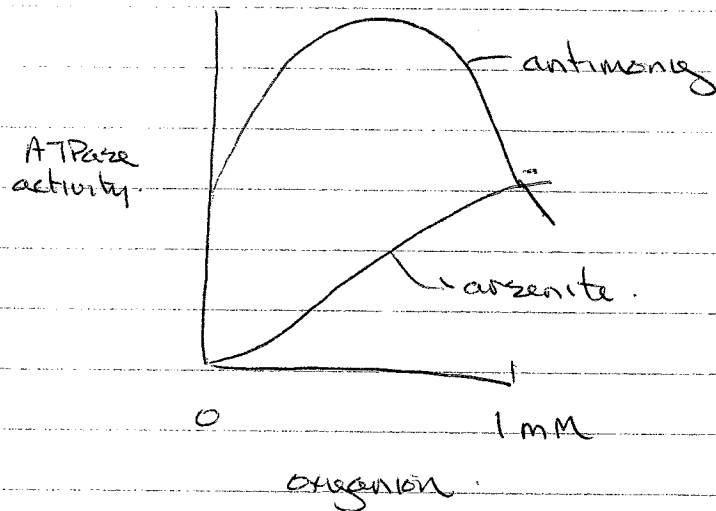 antimony
ATPase
activity.
arsenite.
0
1 mM
oxyanion.